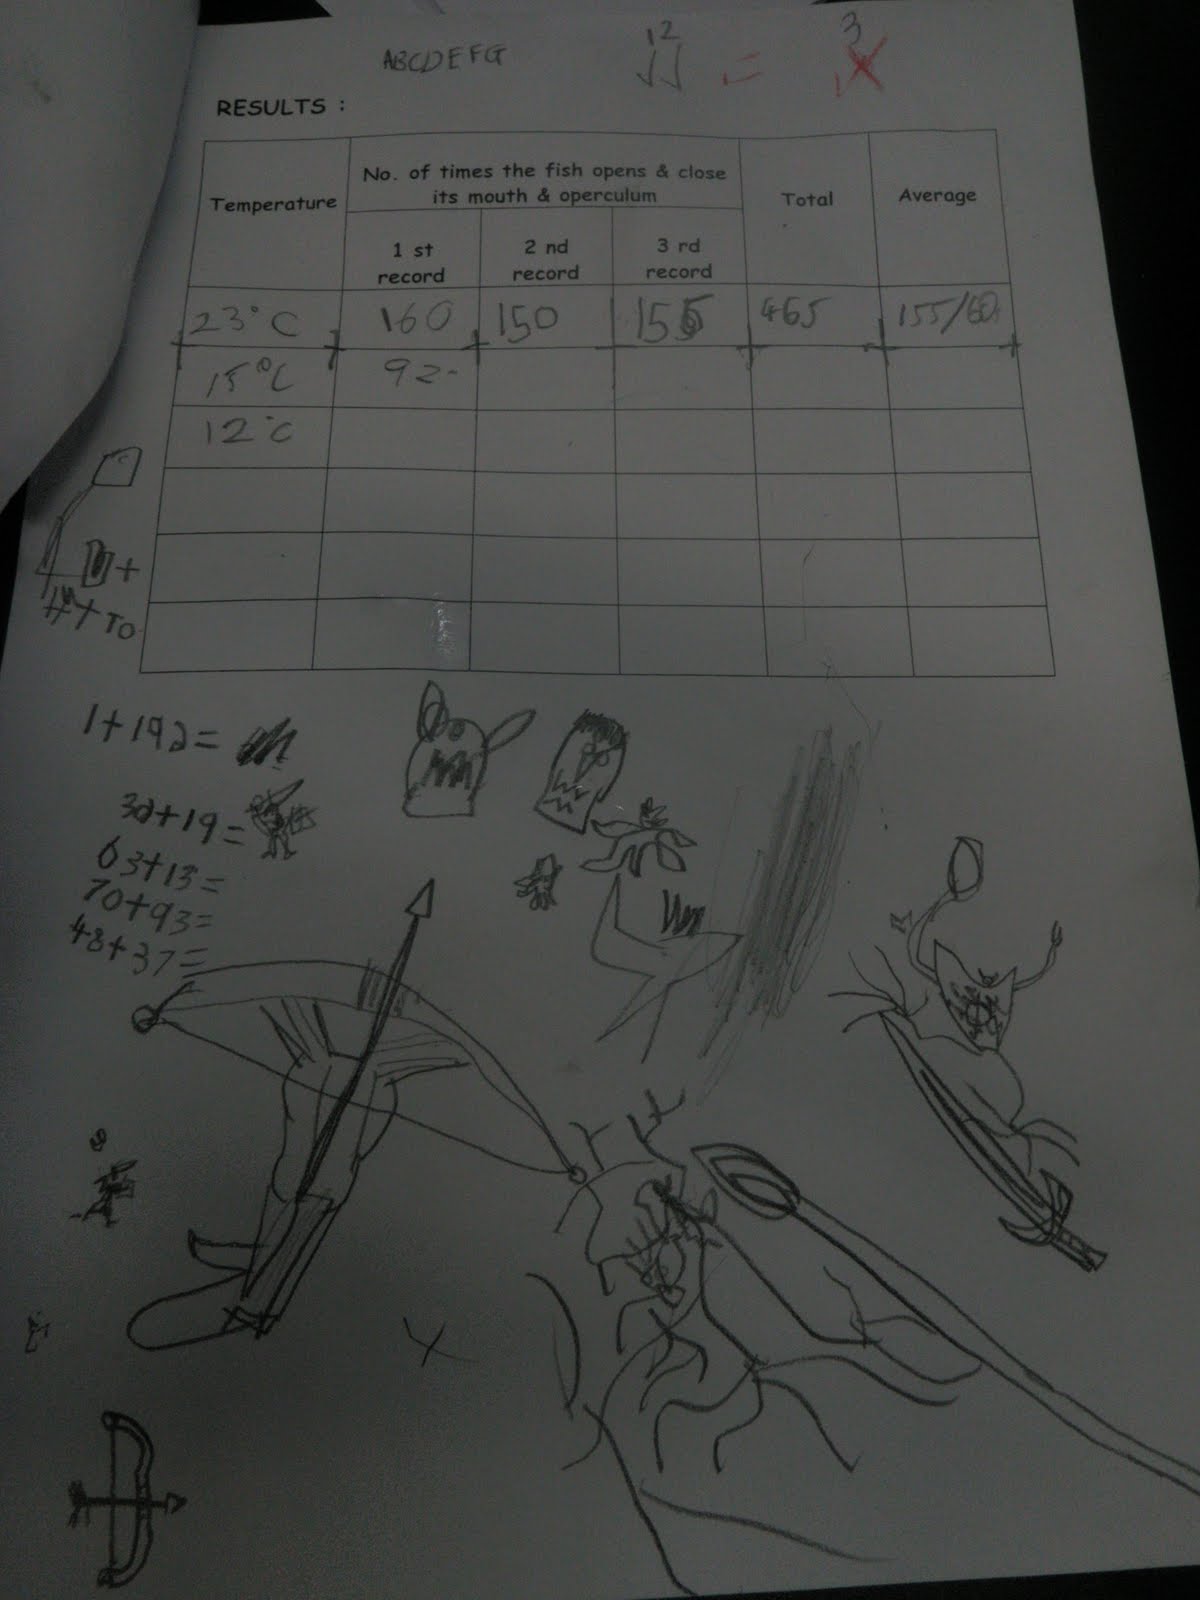 ABCDEFG
12 3
=
RESULTS :
Temperature No. of times the fish opens & close its mouth & operculum Total Average
1 st record 2 nd record 3 rd record
23°C 160 150 155 465 155/60
15°C 92-
12°C
+
TO
1+192=
32+19=
63+13=
70+93=
48+37=